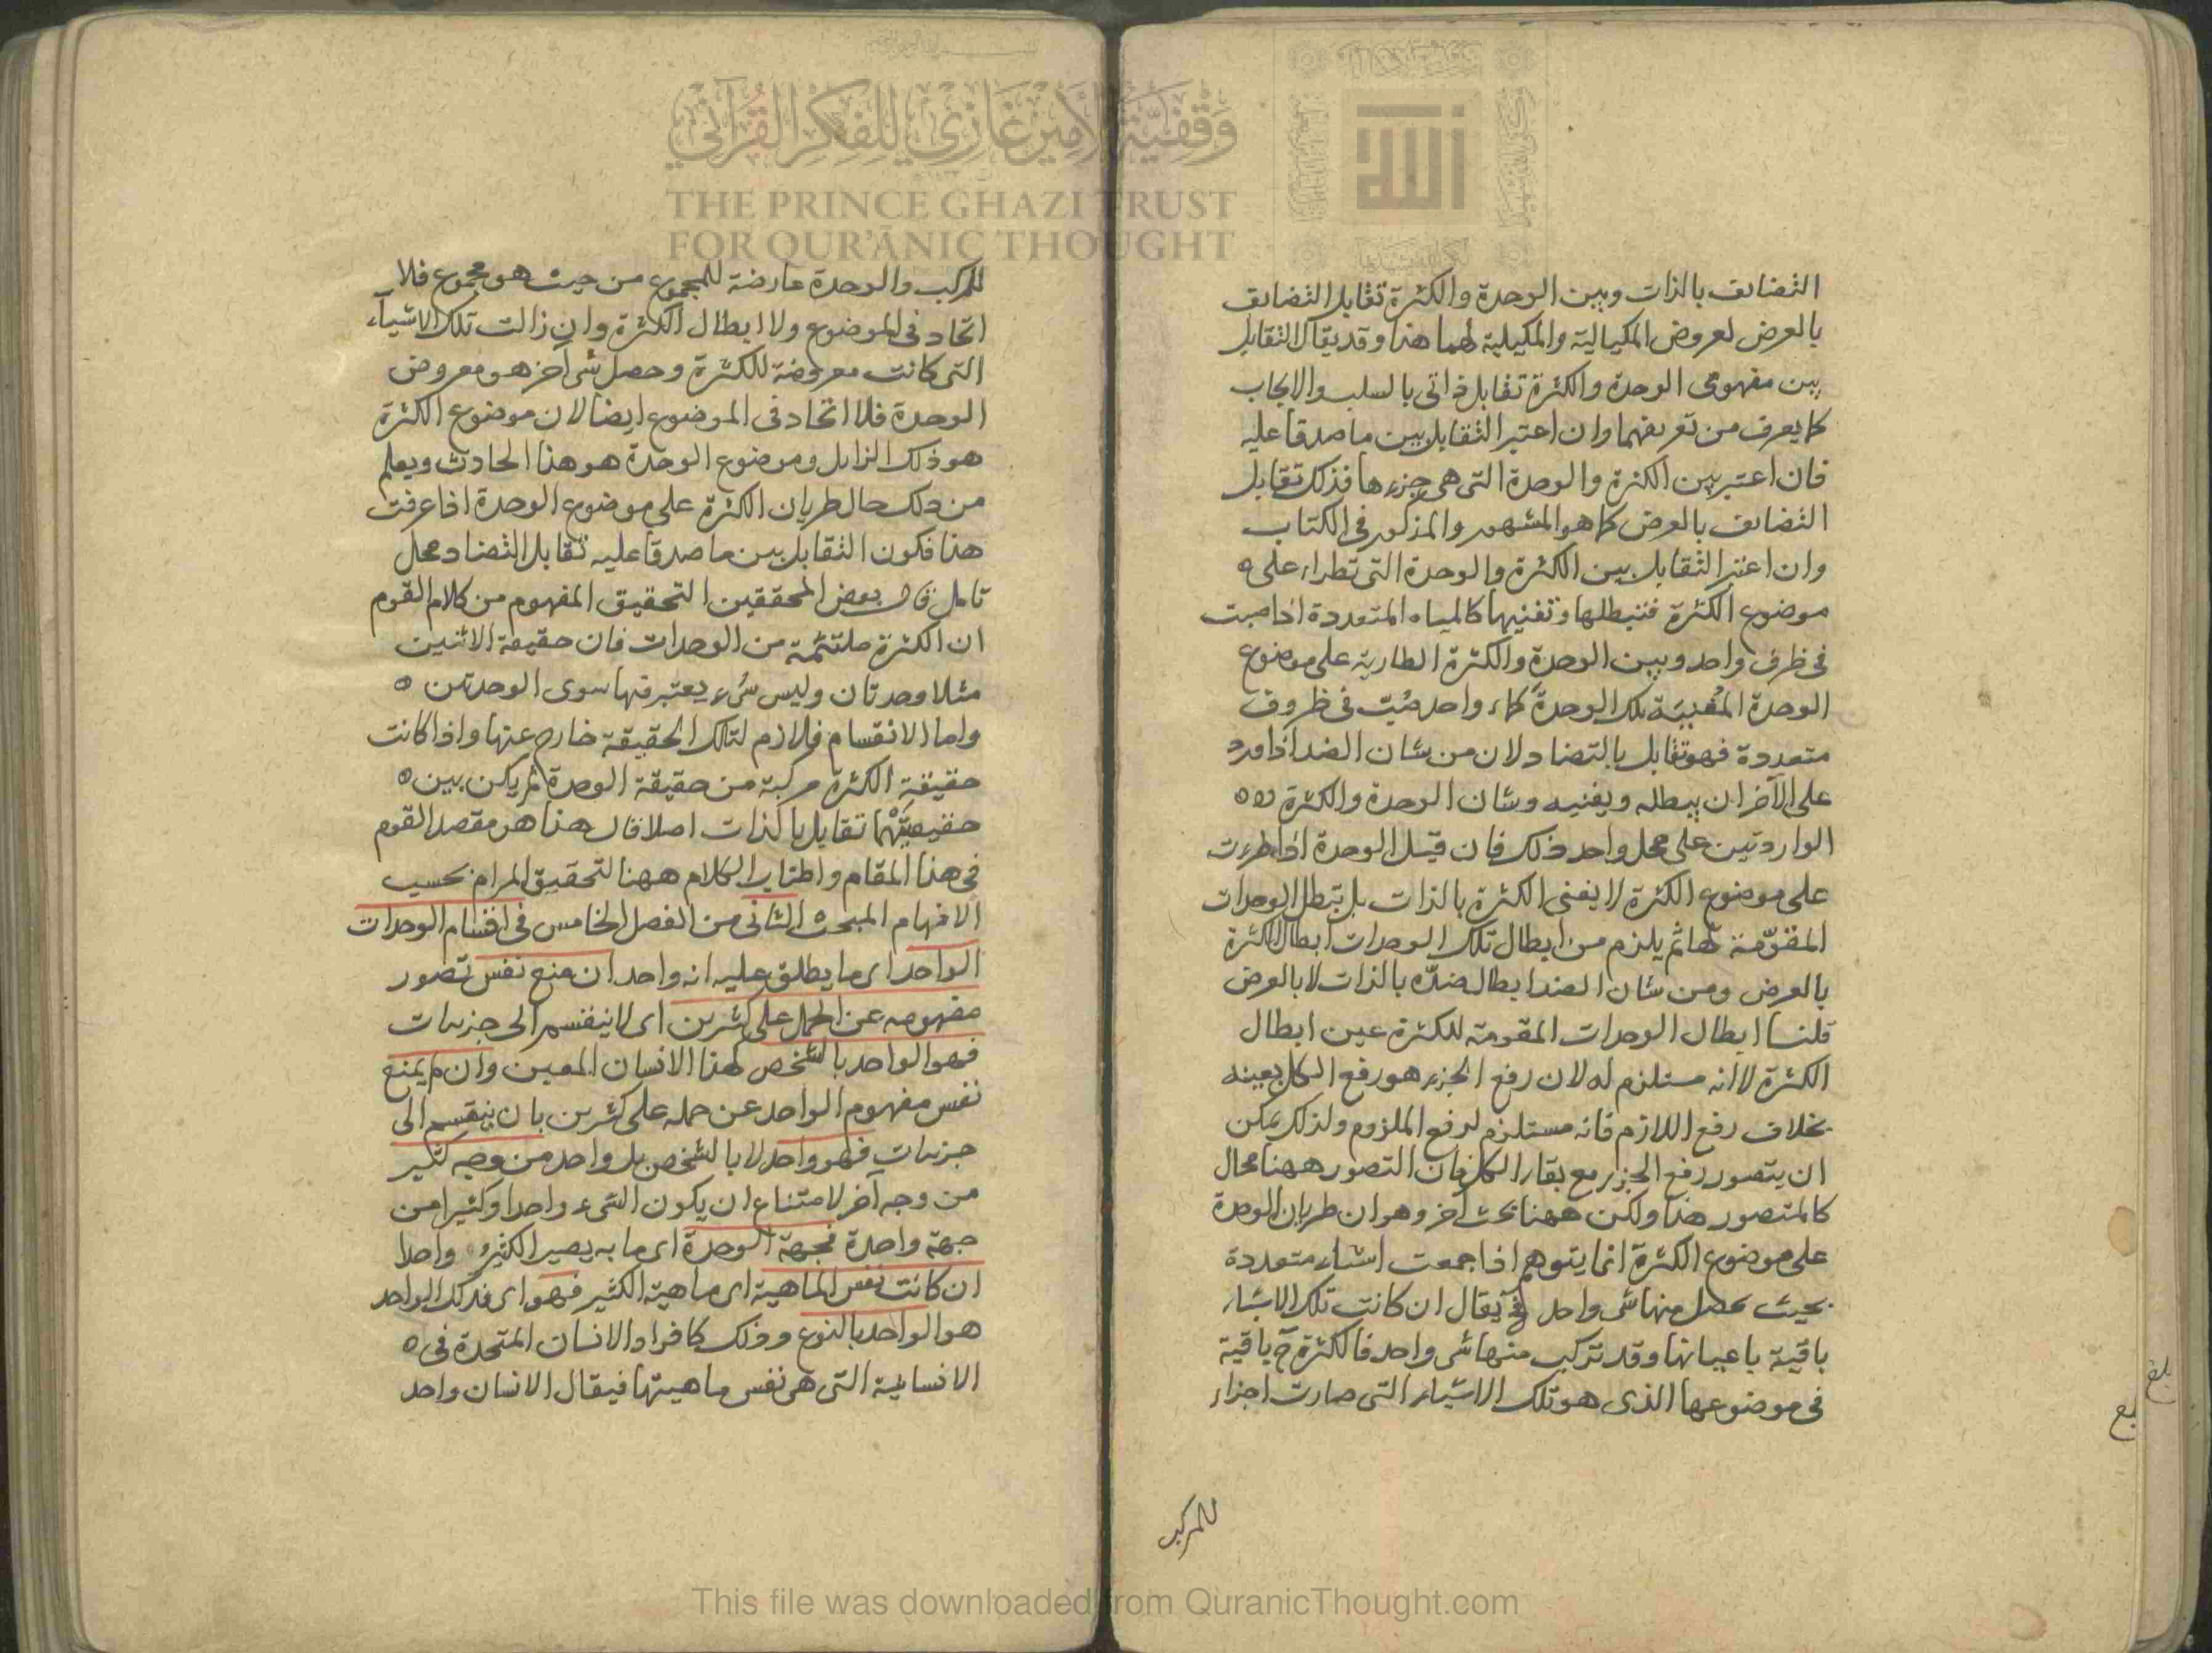 التضايف بالذات وبين الوحدة والكثرة تقابل التضايف
بالعرض لعروض المكيالية والمكيلية لهما هذا وقد يقال التقابل
بين مفهومى الوحدة والكثرة تقابل ذاتى بالسلب والايجاب
كما يعرف من تعريفهما وان اعتبر التقابل بين ما صدقا عليه
فان اعتبر بين الكثرة والوحدة التى هى جزءها فذلك تقابل
التضايف بالعرض كما هو المشهور والمذكور فى الكتاب
وان اعتبر التقابل بين الكثرة والوحدة التى تطراء على ه
موضوع الكثرة فتبطلها وتفنيها كالمياه المتعددة اذا صبت
فى ظرف واحد وبين الوحدة والكثرة الطارية على موضوع
الوحدة المفنية تلك الوحدة كماء واحد صُبّ فى ظروف
متعددة فهو تقابل بالتضاد لان من شان الضد اذا ورد
على الآخر ان يبطله ويفنيه وشان الوحدة والكثرة ه ه ه
الواردتين على محل واحد ذلك فان قيل الوحدة اذا طرءت
على موضوع الكثرة لا يفنى الكثرة بالذات بل تبطل الوحدات
المقوّمة لها ثم يلزم من ابطال تلك الوحدات ابطال الكثرة
بالعرض ومن شان الضد ابطال ضدّه بالذات لا بالعرض
قلنا ابطال الوحدات المقومة للكثرة عين ابطال
الكثرة لا انه مستلزم له لان رفع الجزء هو رفع الكل بعينه
بخلاف رفع اللازم فانه مستلزم لرفع الملزوم ولذلك يمكن
ان يتصور رفع الجزء مع بقاء الكل فان التصور ههنا محال
كالمتصور هذا ولكن ههنا بحث آخر وهو ان طريان الوحدة
على موضوع الكثرة انما يتوهم اذا جمعت اشياء متعددة
بحيث يحصل منها شى واحد فح يقال ان كانت تلك الاشياء
باقية باعيانها وقد تركب منها شى واحد فالكثرة ح باقية
فى موضوعها الذى هو تلك الاشياء التى صارت اجزاء
للمركب
بلغ
للمركب والوحدة عارضة للمجموع من حيث هو مجموع فلا
اتحاد فى الموضوع ولا ابطال الكثرة وان زالت تلك الاشيآء
التى كانت معروضة للكثرة وحصل شى آخر هو معروض
الوحدة فلا اتحاد فى الموضوع ايضا لان موضوع الكثرة
هو ذلك الزايل وموضوع الوحدة هو هذا الحادث ويعلم
من ذلك حال طريان الكثرة على موضوع الوحدة اذا عرفت
هذا فكون التقابل بين ما صدقا عليه تقابل التضاد محل
تامل قال بعض المحققين التحقيق المفهوم من كلام القوم
ان الكثرة ملتئمة من الوحدات فان حقيقة الاثنين
مثلا وحدتان وليس شىء يعتبر فيها سوى الوحدتين ه
واما الانقسام فلازم لتلك الحقيقة خارج عنها واذا كانت
حقيقة الكثرة مركبة من حقيقة الوحدة لم يكن بين ه
حقيقتيهما تقابل بالذات اصلا قال هذا هو مقصد القوم
فى هذا المقام واطناب الكلام ههنا لتحقيق المرام بحسب
الافهام المبحث الثانى من الفصل الخامس فى اقسام الوحدات
الواحد اى ما يطلق عليه انه واحد ان منع نفس تصور
مفهومه عن الحمل على كثيرين اى لا ينقسم الى جزئيات
فهو الواحد بالشخص كهذا الانسان المعين وان لم يمنع
نفس مفهوم الواحد عن حمله على كثيرين بان ينقسم الى
جزئيات فهو واحد لا بالشخص بل واحد من وجه كثير
من وجه آخر لامتناع ان يكون الشىء واحدا وكثيرا من
جهة واحدة فجهة الوحدة اى ما به يصير الكثير واحدا
ان كانت نفس الماهية اى ماهية الكثير فهو اى فذلك الواحد
هو الواحد بالنوع وذلك كافراد الانسان المتحدة فى ه
الانسانية التى هى نفس ماهيتها فيقال الانسان واحد
وقفية الأمير غازي للفكر القرآني
THE PRINCE GHAZI TRUST
FOR QUR'ĀNIC THOUGHT
This file was downloaded from QuranicThought.com